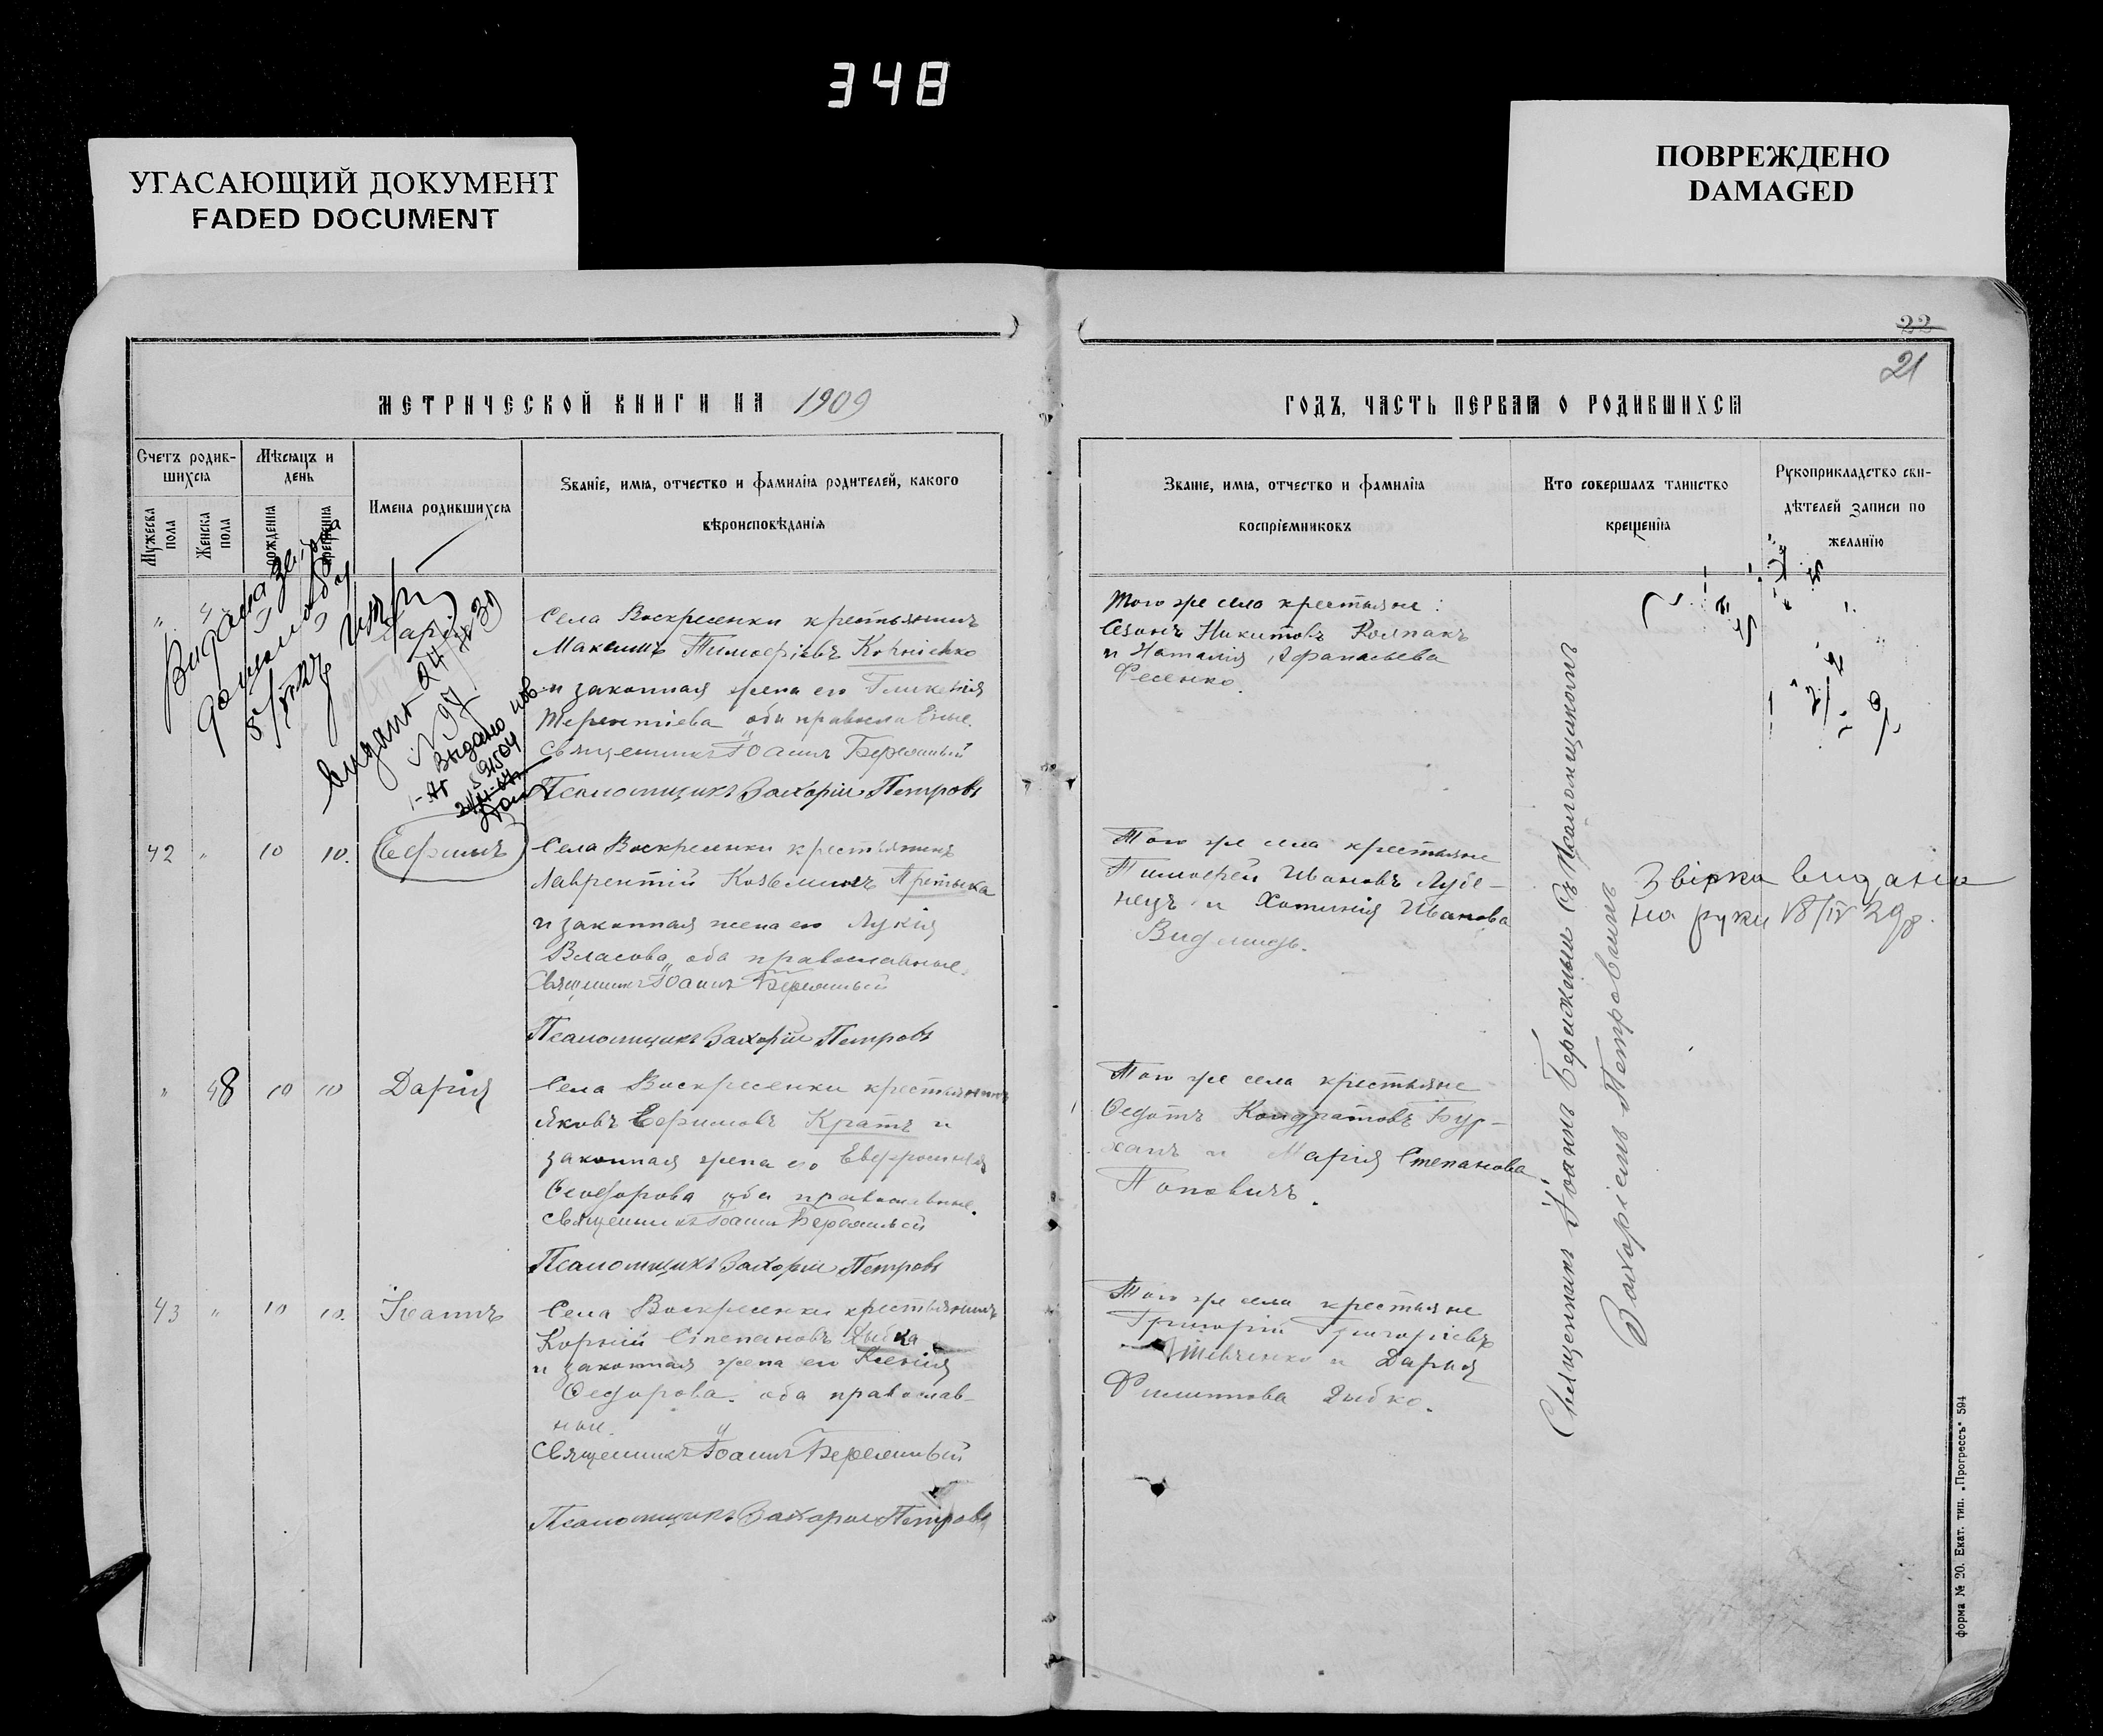 348
УГАСАЮЩИЙ ДОКУМЕНТ
FADED DOCUMENT
ПОВРЕЖДЕНО
DAMAGED
22
21
МЕТРИЧЕСКОЙ КНИГИ НА 1909
ГОДЪ, ЧАСТЬ ПЕРВАЯ О РОДИВШИХСЯ
Счетъ родив-
шихся
Мужеска пола
Женска пола
Мѣсяцъ и
день
рожденія
крещенія
Имена родившихся
Званіе, имя, отчество и фамилія родителей, какого
вѣроисповѣданія
Званіе, имя, отчество и фамилія
воспріемниковъ
Кто совершалъ таинство
крещенія
Рукоприкладство сви-
дѣтелей записи по
желанію
Села Воскресенки крестьянинъ
Максимъ Тимоѳіевъ Корніенко
и законная жена его Гликерія
Терентіева оба православные.
Священникъ Іоаннъ Бережный
Псаломщикъ Захарій Петровъ
Того же села крестьяне:
Никитовъ Колпакъ
и Наталія Афанасьева
Фесенко.
42 " 10 10. Ефимъ
Села Воскресенки крестьянинъ
Лаврентій Козьминъ Претыка
и законная жена его Лукія
Власова, оба православные.
Священникъ Іоаннъ Бережный
Псаломщикъ Захарій Петровъ
Того же села крестьяне
Тимоѳей Ивановъ Лубе-
нецъ и Хотинія Иванова
Звірка видана
на руки
" 48 10 10 Дарія
Села Воскресенки крестьянинъ
Яковъ Ефимовъ Кратъ и
законная жена его Евфросинія
Ѳеодорова оба православные.
Священникъ Іоаннъ Бережный
Псаломщикъ Захарій Петровъ
Того же села крестьяне
Ѳедотъ Кондратовъ Бур-
ханъ и Марія Степанова
Поповичъ.
43 " 10 10. Іоаннъ
Села Воскресенки крестьянинъ
Корній Степановъ Дыбка
и законная жена его Ксенія
Ѳедорова. оба православ-
ные.
Священникъ Іоаннъ Бережный
Псаломщикъ Захарій Петровъ
Того же села крестьяне
Григорій Григоріевъ
Шевченко и Дарія
Филиппова Дыбко.
Священникъ Іоаннъ Бережный съ Псаломщикомъ
Захаріемъ Петровымъ
форма № 20. Екат. тип. „Прогрессъ" 594